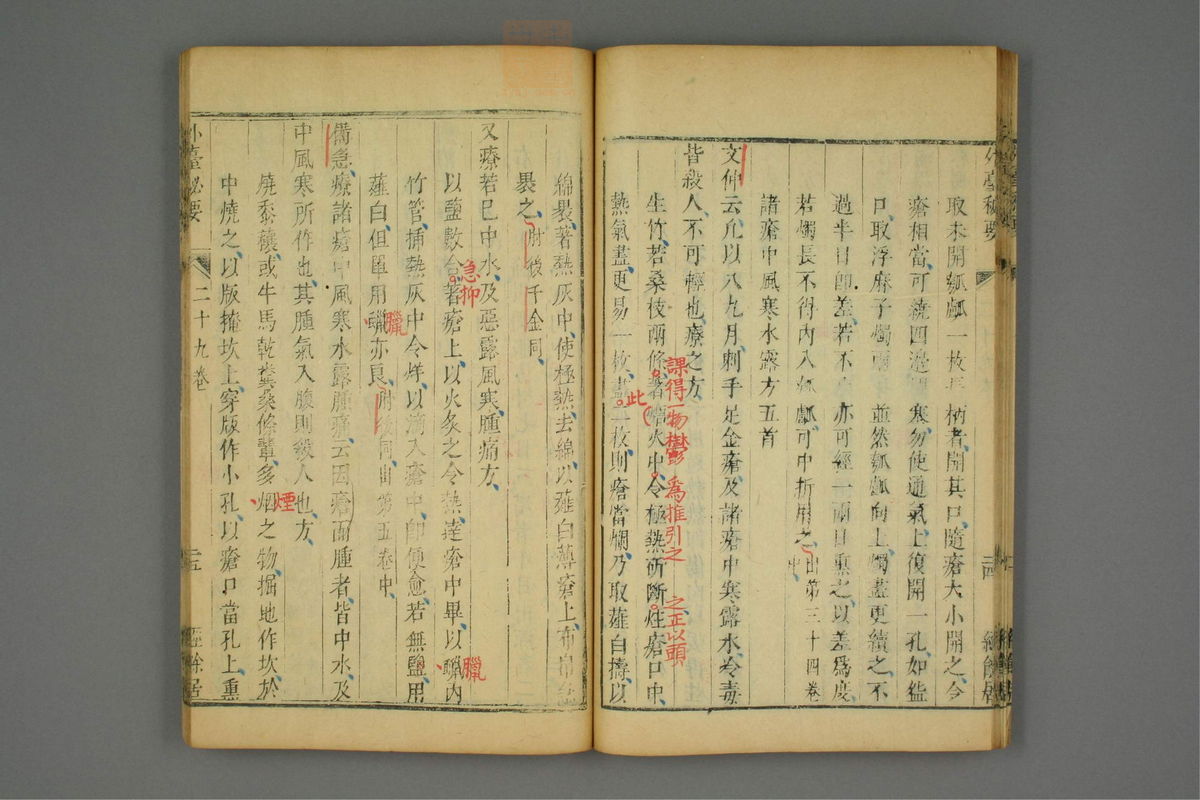 外臺秘要
取未開瓠瓤一枚長柄者開其口隨瘡大小開之令
瘡相當可繞四邊閉塞勿使通氣上復開一孔如盌
口取浮麻子燭兩 並然瓠瓤向上燭盡更續之不
過半日卽差若不 亦可經一兩日熏之以差爲度
若燭長不得內入瓠瓤可中折用之出第三十四卷中
諸瘡中風寒水露方五首
文仲云凡以八九月刺手足金瘡及諸瘡中寒露水冷毒
皆殺人不可輕也療之方
生竹若桑枝兩條著煻火中令極熱斫斷炷瘡口中
熱氣盡更易一枚盡二枚則瘡當爛乃取薤白擣以
課得一物鬱
爲推引之
之正以頭
此
二十四
經餘居
綿裹著熱灰中使極熱去綿以薤白薄瘡上布帛急
裹之肘後千金同
又療若已中水及惡露風寒腫痛方
以鹽數合著瘡上以火炙之令熱達瘡中畢以蠟內
竹管插熱灰中令烊以滴入瘡中卽便愈若無鹽用
薤白但單用蠟亦良肘後同出第五卷中
備急療諸瘡中風寒水露腫痛云因瘡而腫者皆中水及
中風寒所作也其腫氣入腹則殺人也方
燒黍穰或牛馬乾糞桑條輩多烟之物掘地作坎於
中燒之以版掩坎上穿版作小孔以瘡口當孔上熏
急抑
臘
臘
煙
外臺秘要
二十九卷
二五
經餘居